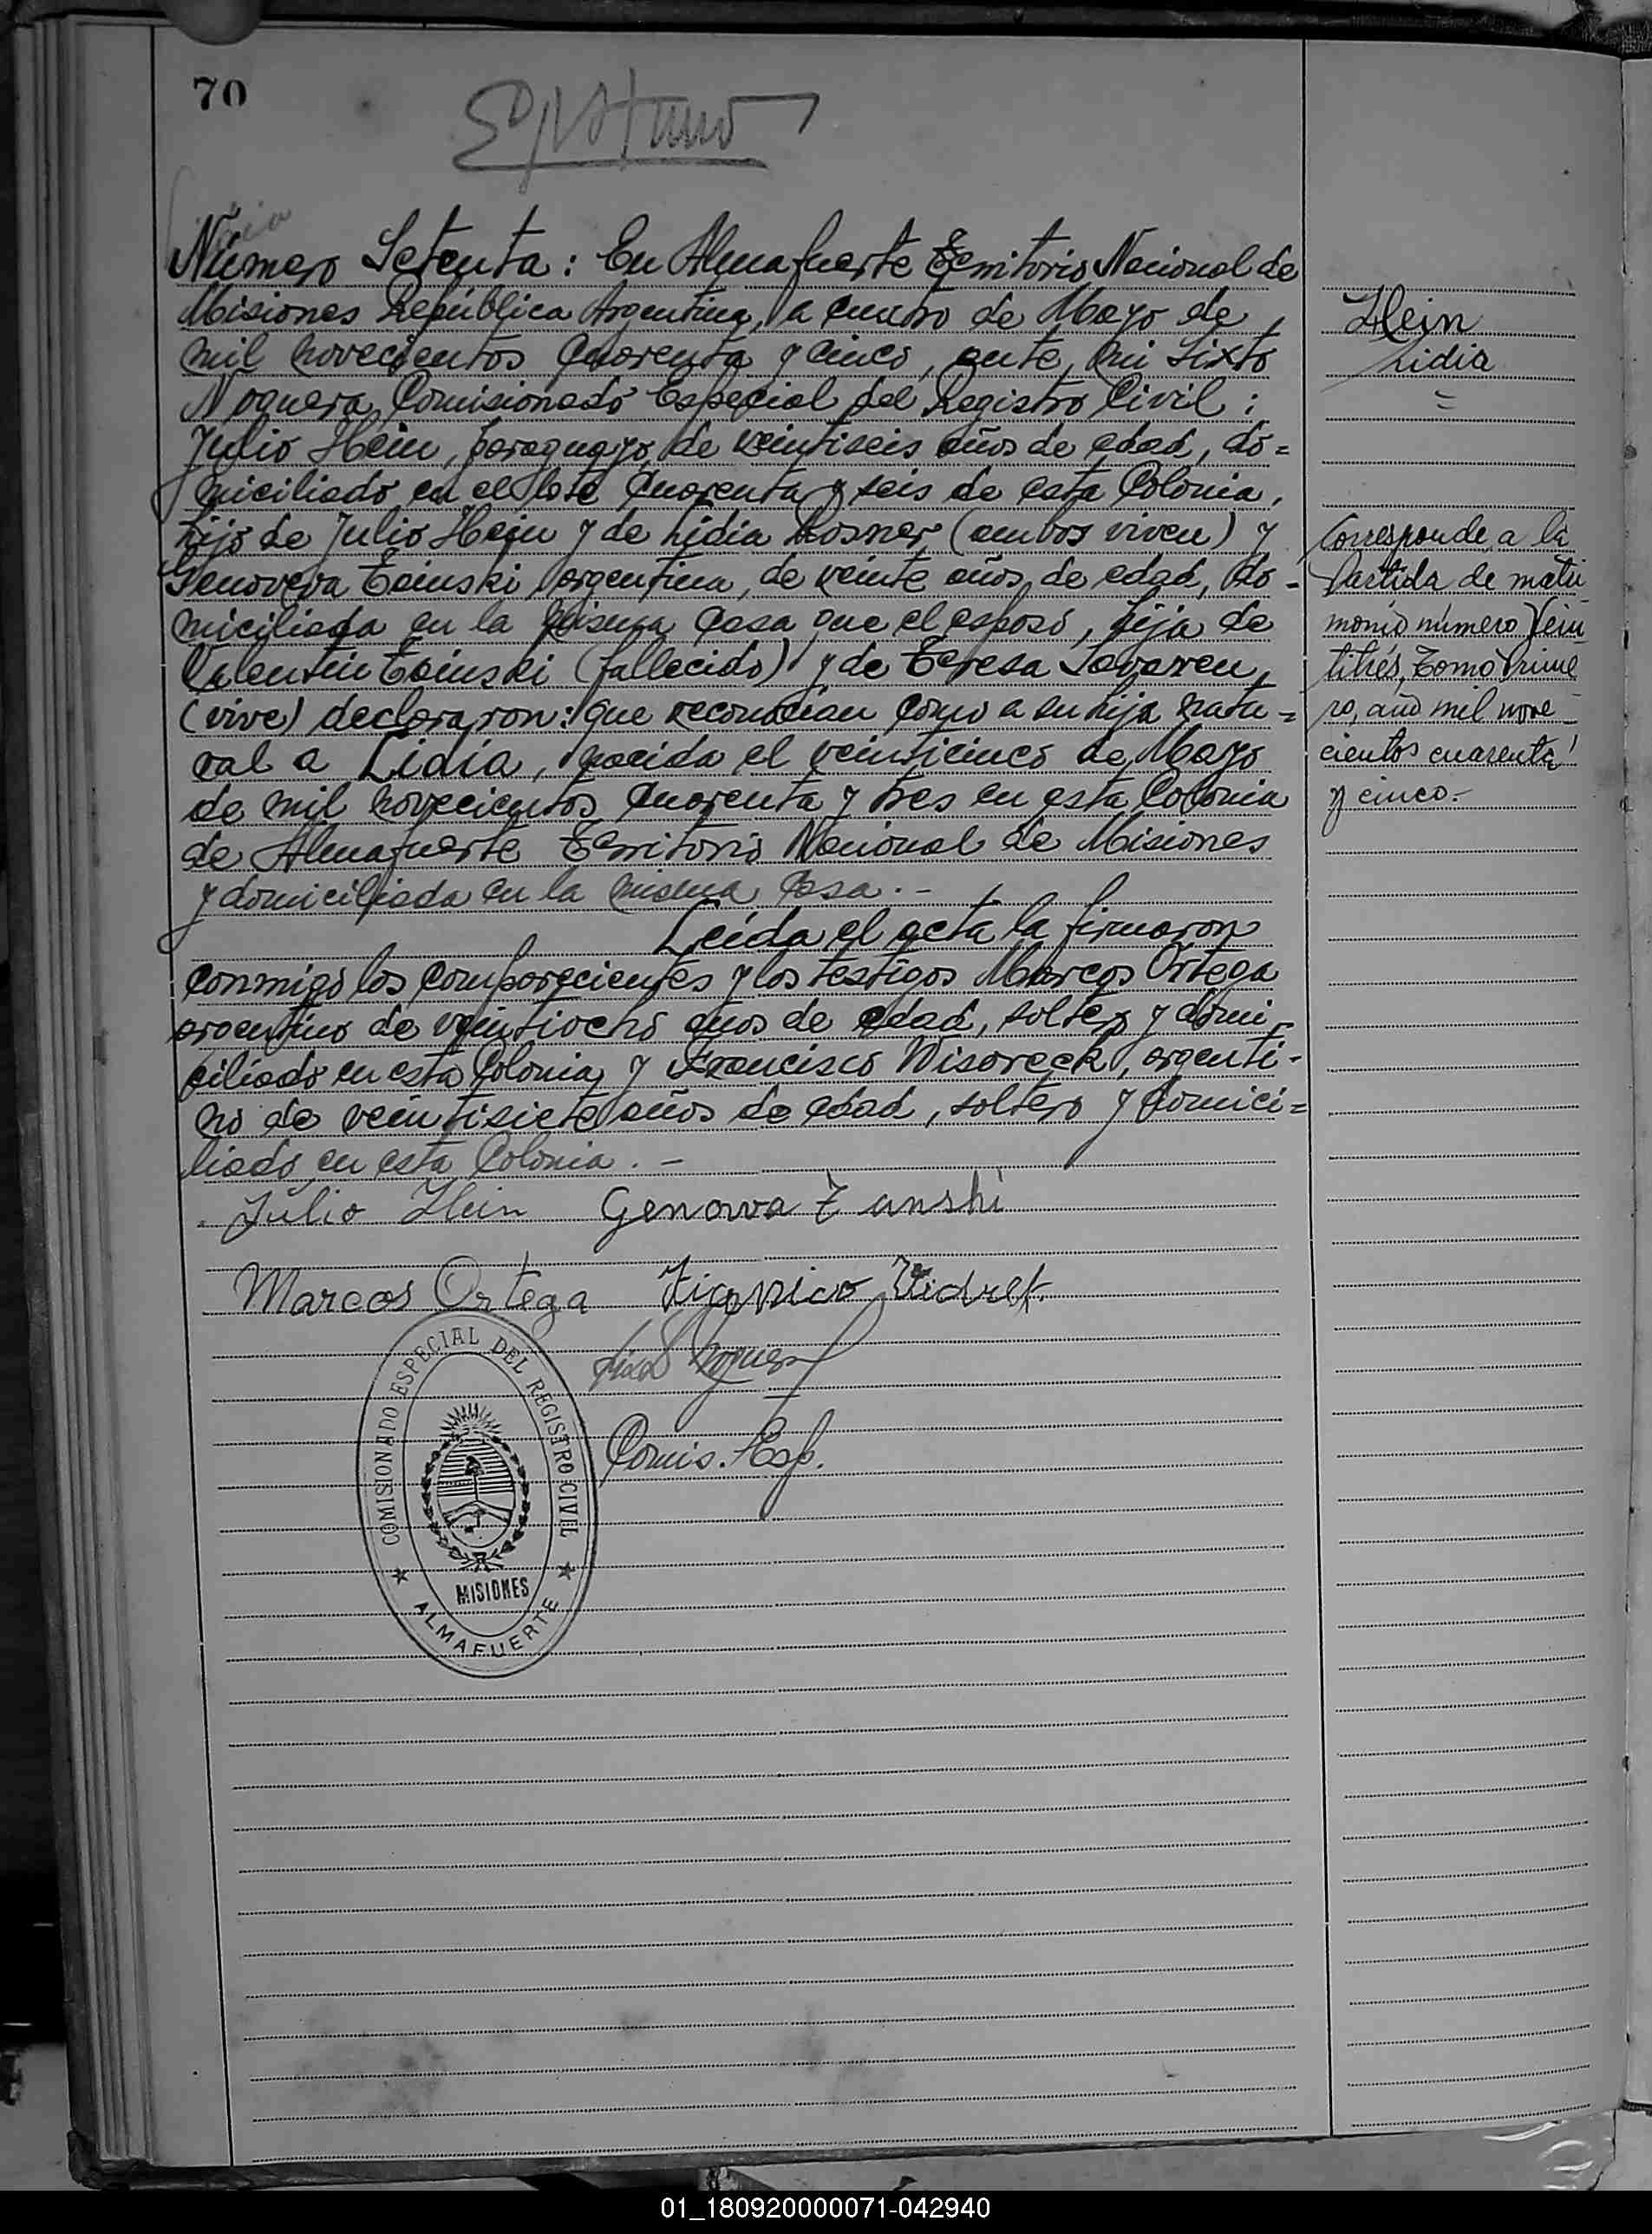 70
Número Setenta: En Almafuerte Territorio Nacional de
Misiones República Argentina, a cuatro de Mayo de
mil novecientos cuarenta y cinco, ante mi Sixto
Noguera, Comisionado Especial del Registro Civil:
Julio Hein, paraguayo, de veintiseis años de edad, do=
miciliado en el lote cuarenta y seis de esta Colonia,
hijo de Julio Hein y de Lidia Rosner (ambos viven) y
Genoveva argentina, de veinte años de edad, do-
miciliada en la misma casa que el esposo, hija de
Valentin (fallecido) y de Teresa
(vive) declararon: que reconocían como a su hija natu=
ral a Lidia, nacida el veinticinco de Mayo
de mil novecientos cuarenta y tres en esta Colonia
de Almafuerte Territorio Nacional de Misiones
y domiciliada en la misma casa.-
Leída el acta la firmaron
conmigo los comparecientes y los testigos Marcos Ortega
argentino de veintiocho años de edad, soltero y domi-
ciliado en esta Colonia y Francisco argenti-
no de veintisiete años de edad, soltero y domici=
liado en esta Colonia.-
Julio Hein Genowa
Marcos Ortega
Comis. Esp.
COMISIONADO ESPECIAL DEL REGISTRO CIVIL
MISIONES
ALMAFUERTE
Hein
Lidia
=
Corresponde a la
Partida de matri
monio número Vein
titrés, Tomo Prime
ro, año mil nove-
cientos cuarenta
y cinco.-
01_180920000071-042940